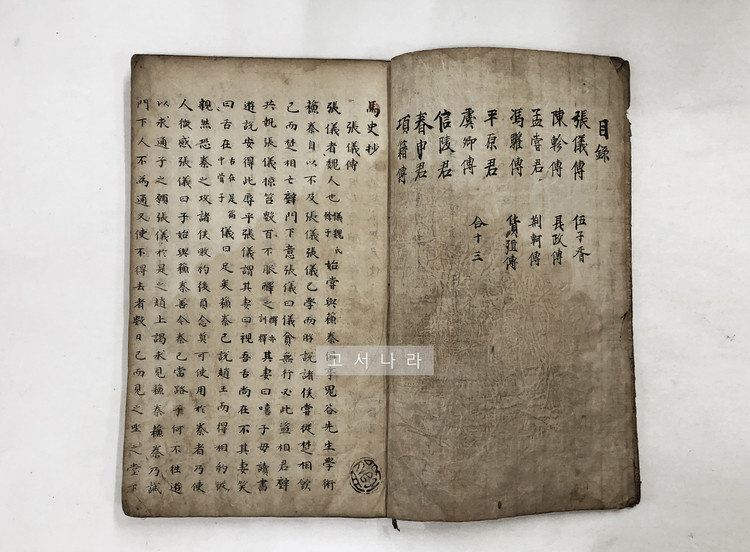 目錄
張儀傳
陳軫傳
孟嘗君
馮驩傳
平原君
虞卿傳
信陵君
春申君
項籍傳
伍子胥
政傳
荊軻傳
貨殖傳
合十三
馬史抄
張儀傳
張儀者魏人也 儀魏氏餘子 始嘗與蘇秦 事鬼谷先生學術
蘇秦自以不及張儀張儀已學而游說諸侯嘗從楚相飲
已而楚相亡璧門下意張儀曰儀貧無行必此盜相君璧
共執張儀掠笞數百不服醳之 其妻曰嘻子毋讀書
遊說安得此辱乎張儀謂其妻曰視吾舌尚在不其妻笑
曰舌在 儀曰足矣蘇秦已說趙王而得相約從
親然恐秦之攻諸侯敗約後負念莫可使用於秦者乃使
人微感張儀曰子始與蘇秦善今秦已當路子何不往遊
以求通子之願張儀於是之趙上謁求見蘇秦蘇秦乃誡
門下人不為通又使不得去者數日已而見之坐之堂下
고서나라